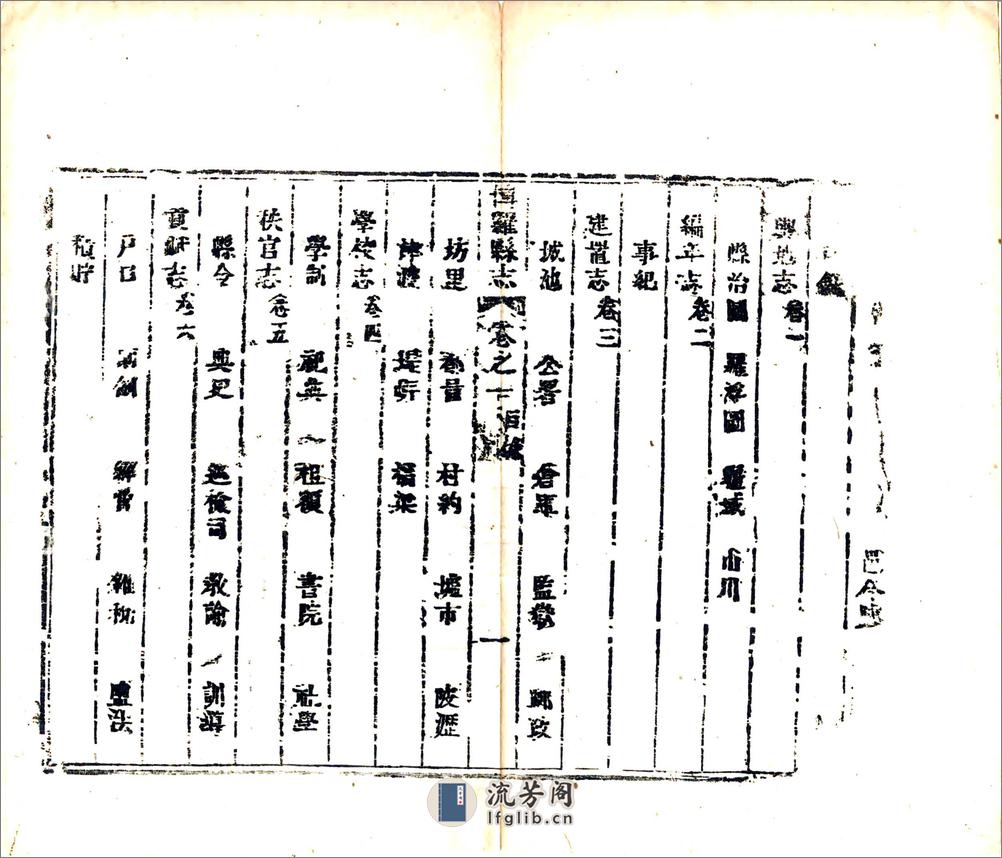 目錄
輿地志 卷一
縣治圖 羅浮圖 疆域 山川
編年志 卷二
事紀
建置志 卷三
城池 公署 倉庫 監獄 郵政
博羅縣志 卷之 目錄 一
坊里 村約 墟市 陂瀝
津渡 堤 橋梁
學校志 卷四
學制 祀典 租額 書院 社學
秩官志 卷五
縣令 典史 巡檢司 教諭 訓導
貢賦志 卷六
戶口 雜稅 鹽法
積貯
流芳阁
lfglib.cn